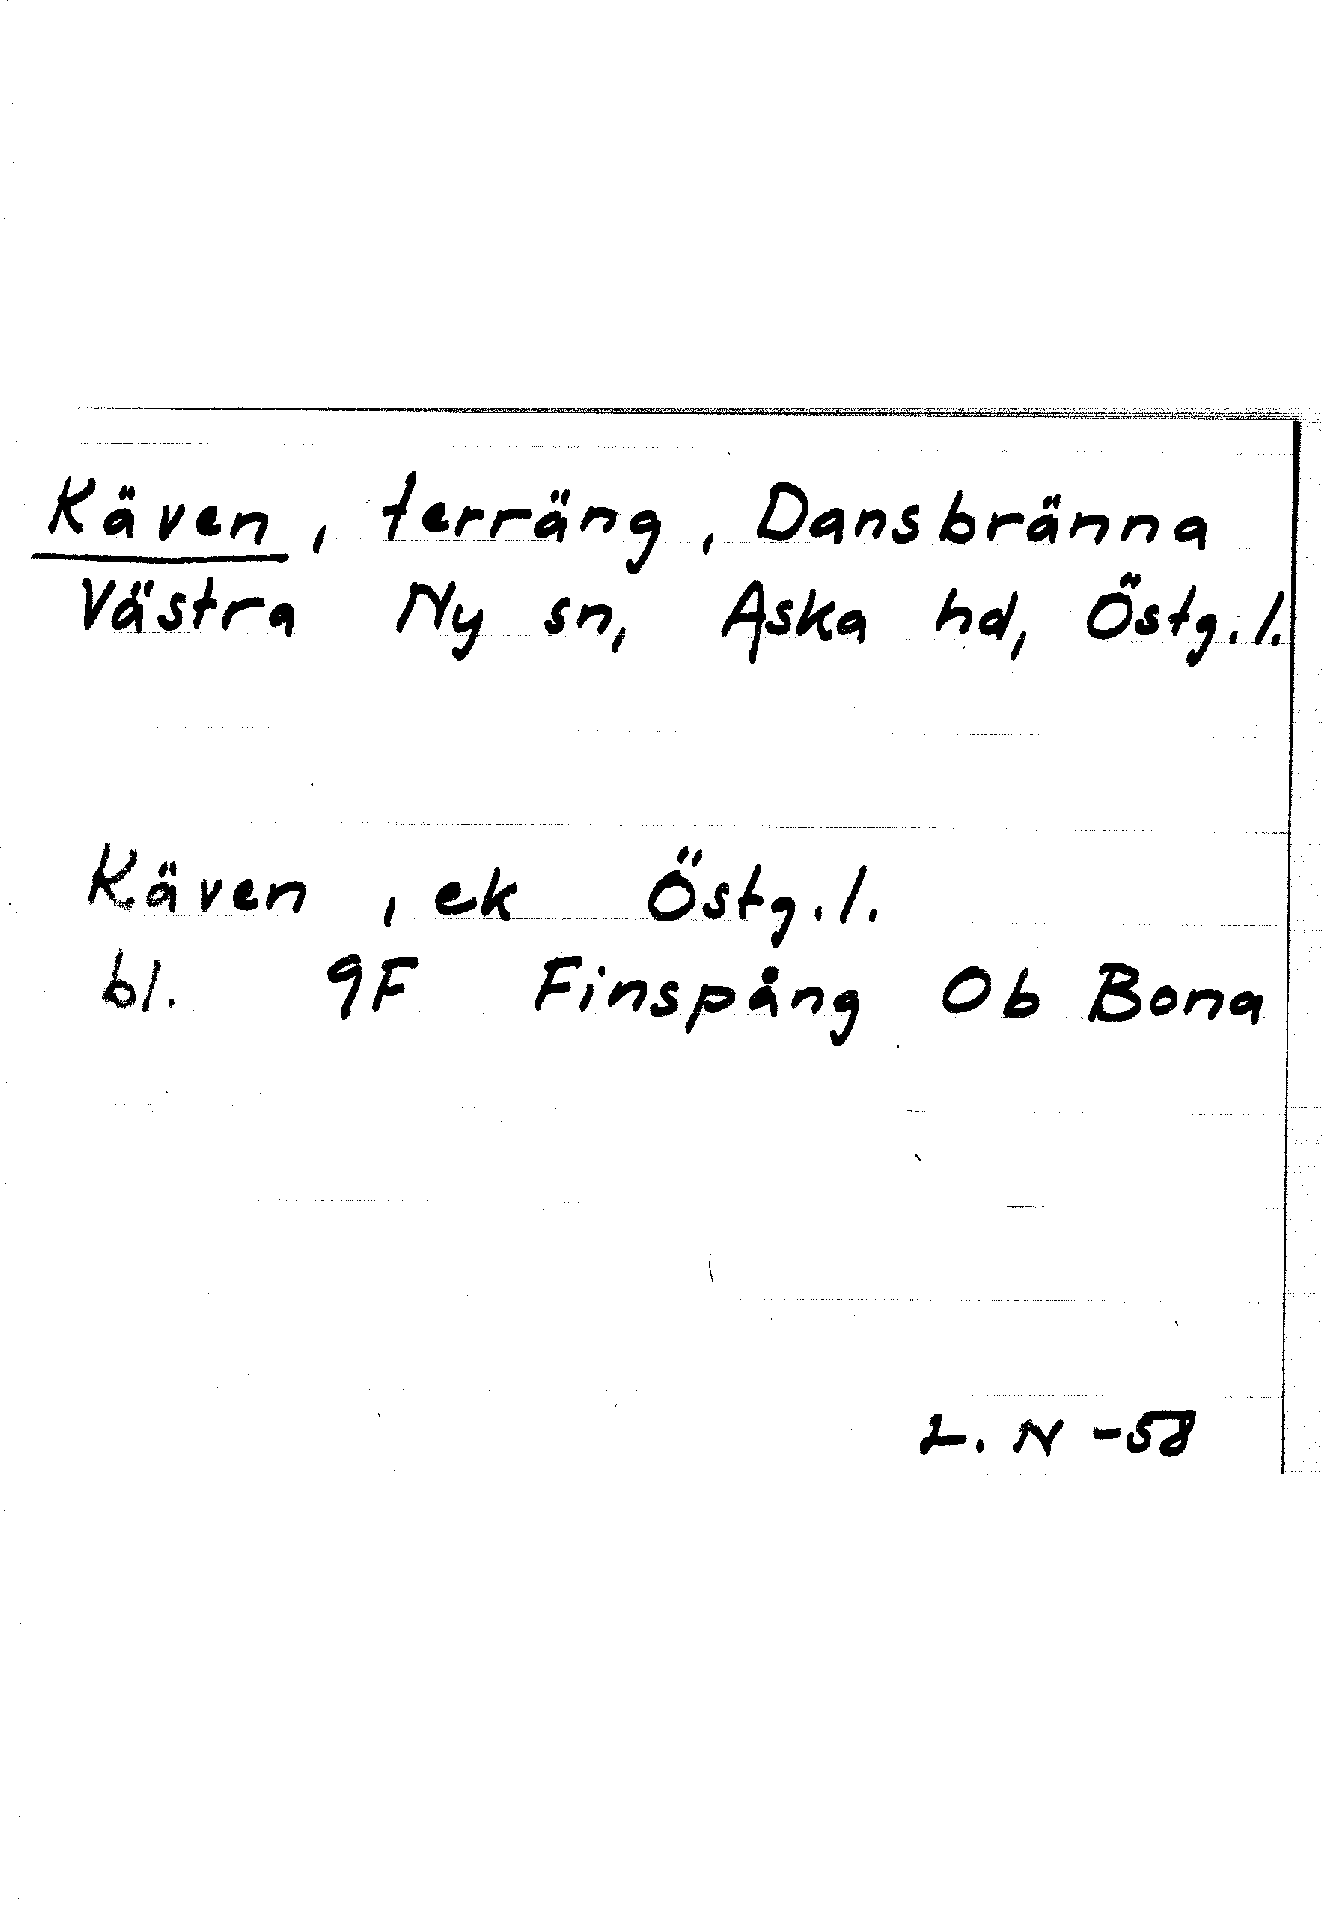 Käven, terräng, Dansbränna
Västra Ny sn, Aska hd, Östg.l.
Käven, ek Östg.l.
bl. 9F Finspång Ob Bona
L. N -58